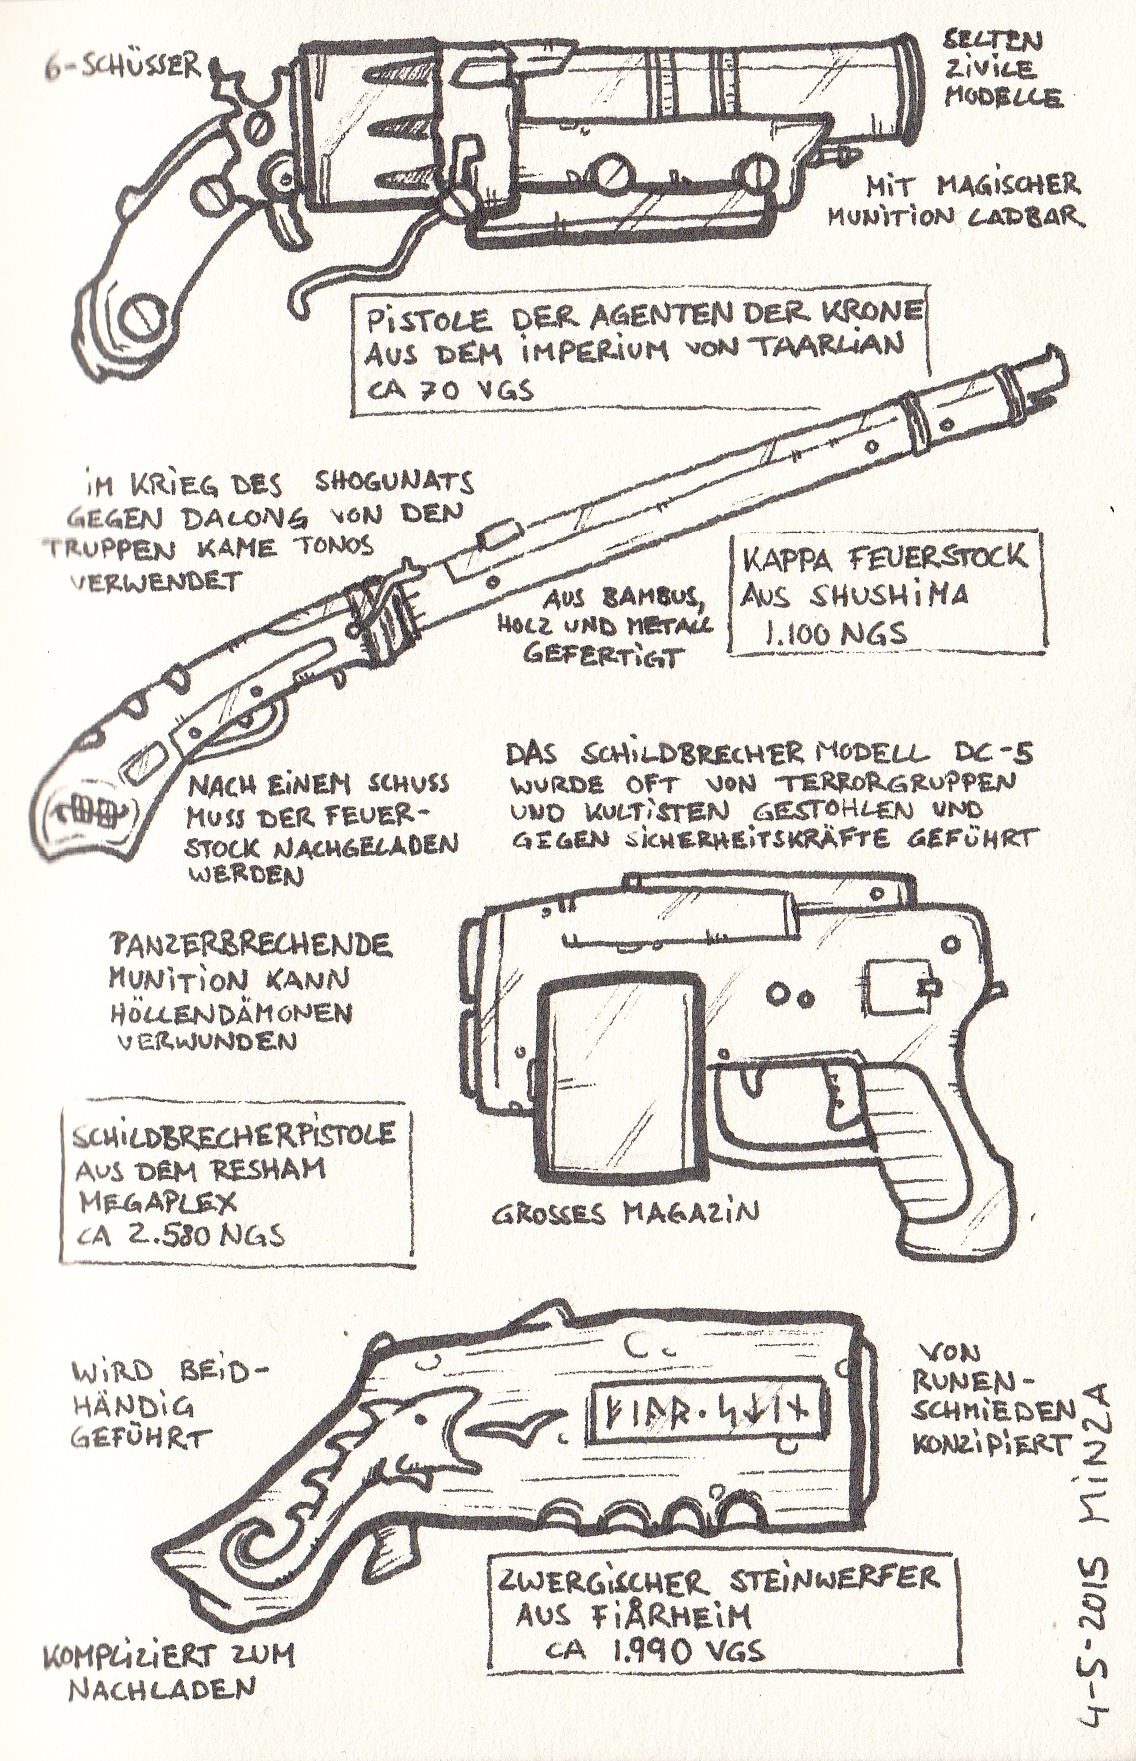 6-SCHÜSSER
SELTEN
ZIVILE
MODELLE
MIT MAGISCHER
MUNITION LADBAR
PISTOLE DER AGENTEN DER KRONE
AUS DEM IMPERIUM VON TAARLIAN
CA 70 VGS
IM KRIEG DES SHOGUNATS
GEGEN DALONG VON DEN
TRUPPEN KAME TONOS
VERWENDET
KAPPA FEUERSTOCK
AUS SHUSHIMA
1.100 NGS
AUS BAMBUS,
HOLZ UND METALL
GEFERTIGT
NACH EINEM SCHUSS
MUSS DER FEUER-
STOCK NACHGELADEN
WERDEN
DAS SCHILDBRECHER MODELL DC-5
WURDE OFT VON TERRORGRUPPEN
UND KULTISTEN GESTOHLEN UND
GEGEN SICHERHEITSKRÄFTE GEFÜHRT
PANZERBRECHENDE
MUNITION KANN
HÖLLENDÄMONEN
VERWUNDEN
SCHILDBRECHERPISTOLE
AUS DEM RESHAM
MEGAPLEX
CA 2.580 NGS
GROSSES MAGAZIN
WIRD BEID-
HÄNDIG
GEFÜHRT
VON
RUNEN-
SCHMIEDEN
KONZIPIERT
ZWERGISCHER STEINWERFER
AUS FIÅRHEIM
CA 1.990 VGS
KOMPLIZIERT ZUM
NACHLADEN
4-5-2015 MINZA